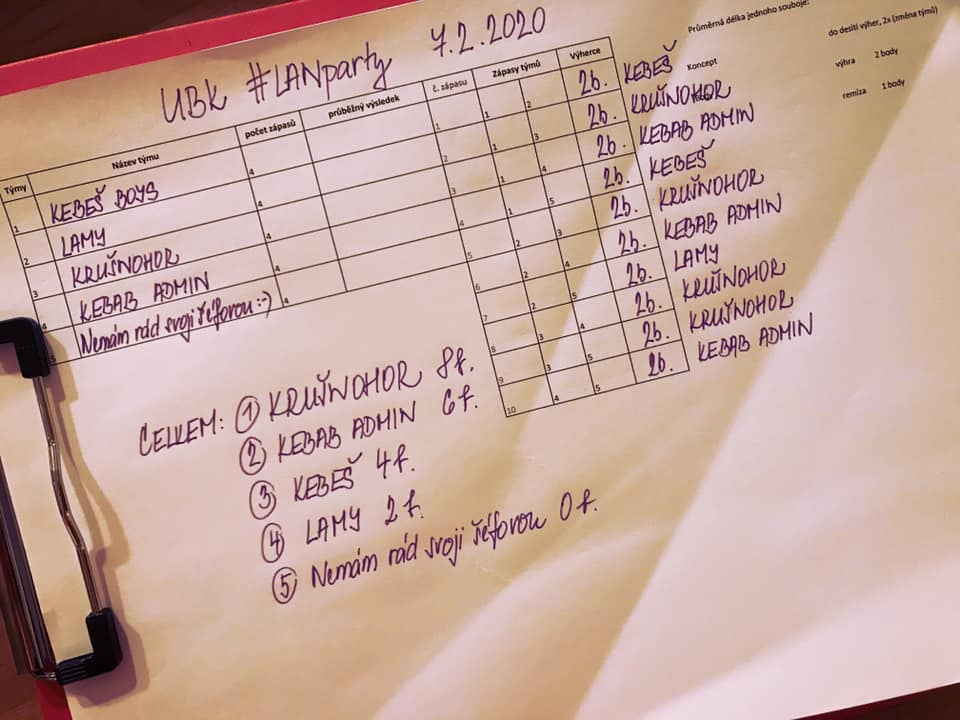 UBK #LANparty 7.2.2020
Průměrná délka jednoho souboje:
do desíti výher, 2x (změna týmů)
Koncept
výhra 2 body
remíza 1 body
Týmy Název týmu počet zápasů průběžný výsledek
1 KEBEŠ BOYS 4
2 LAMY 4
3 KRUŠNOHOR 4
4 KEBAB ADMIN 4
5 Nemám rád svoji šéfovou :-) 4
č. zápasu Zápasy týmů Výherce
1 1 2 2b. KEBEŠ
2 1 3 2b. KRUŠNOHOR
3 1 4 2b. KEBAB ADMIN
4 1 5 2b. KEBEŠ
5 2 3 2b. KRUŠNOHOR
6 2 4 2b. KEBAB ADMIN
7 2 5 2b. LAMY
8 3 4 2b. KRUŠNOHOR
9 3 5 2b. KRUŠNOHOR
10 4 5 2b. KEBAB ADMIN
CELKEM: 1 KRUŠNOHOR 8b.
2 KEBAB ADMIN 6b.
3 KEBEŠ 4b.
4 LAMY 2b.
5 Nemám rád svoji šéfovou 0b.